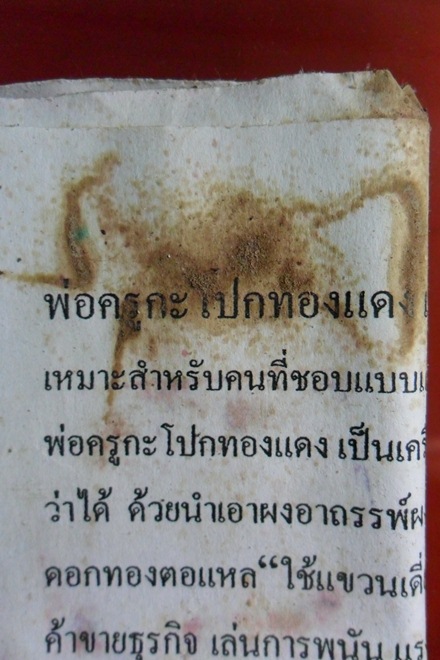 พ่อครูกะโปกทองแดง
เหมาะสำหรับคนที่ชอบแบบ
พ่อครูกะโปกทองแดง เป็น
ว่าได้ ด้วยนำเอาผงอาถรรพ์
ดอกทองตอแหล“ใช้แขวน
ค้าขายธุรกิจ เล่นการพนัน